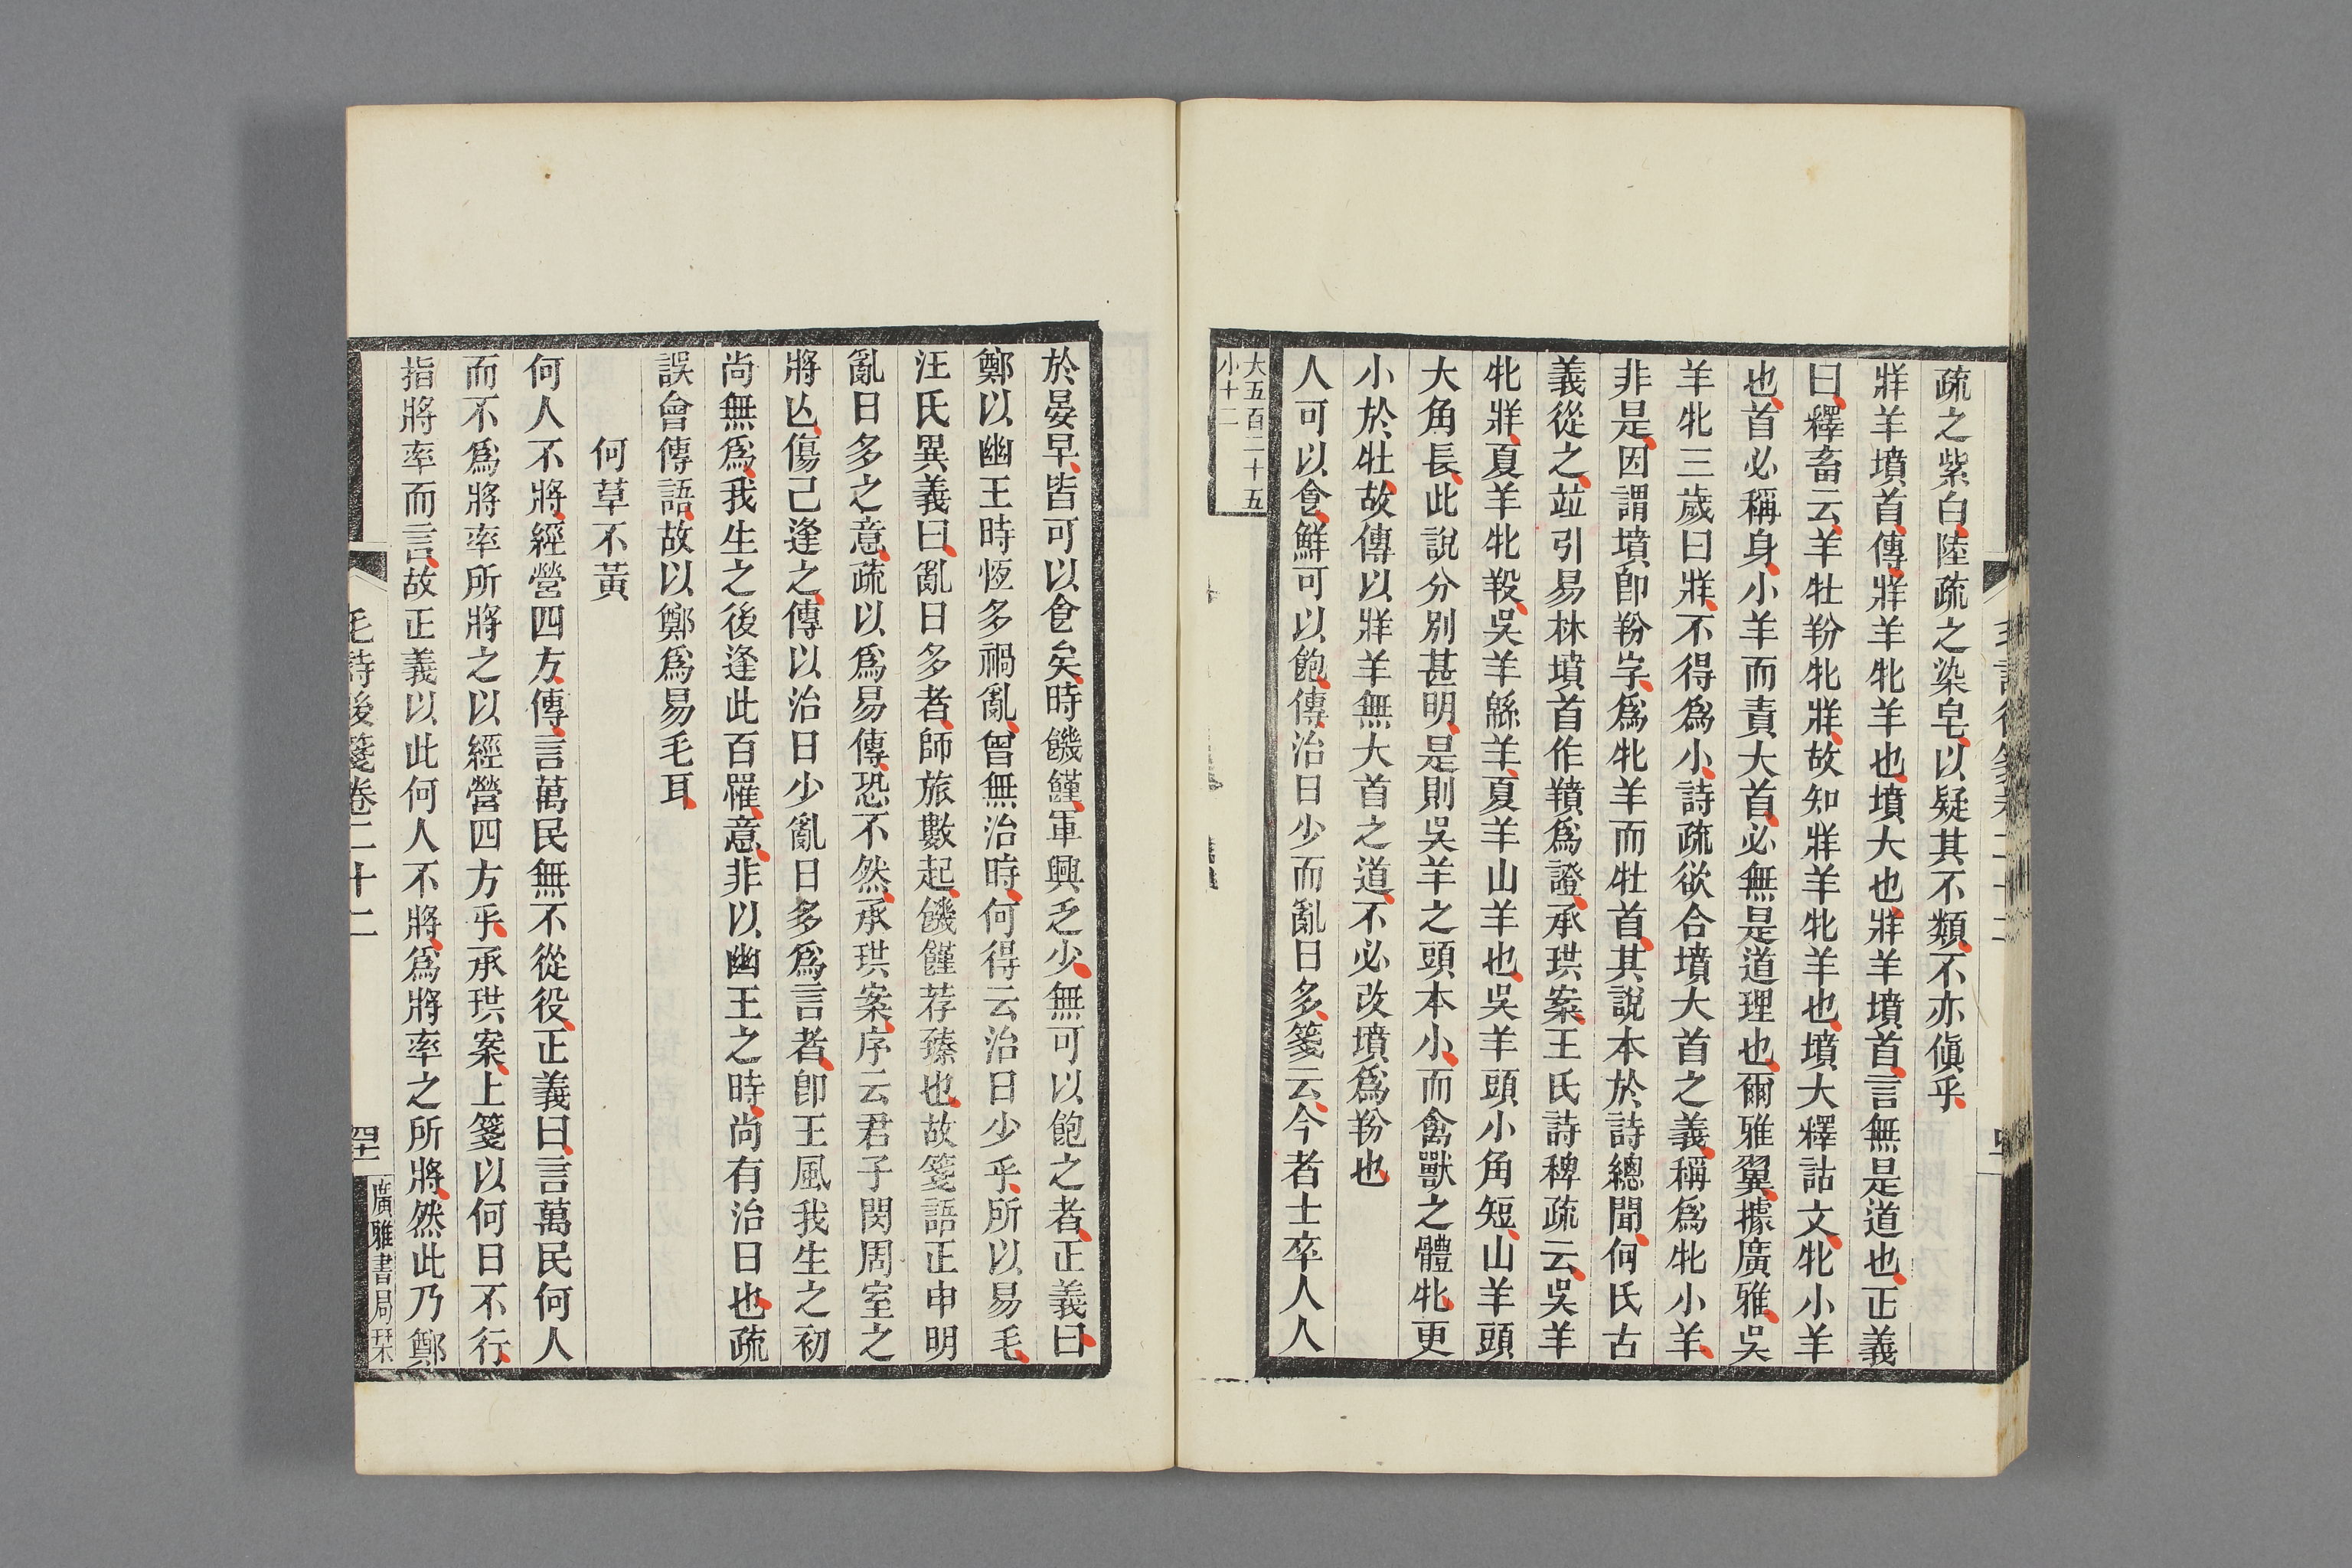 疏之紫白陸疏之染皂以疑其不類不亦傎乎
牂羊墳首傳牂羊牝羊也墳大也牂羊墳首言無是道也正義
曰釋畜云羊牡羒牝牂故知牂羊牝羊也墳大釋詁文牝小羊
也首必稱身小羊而責大首必無是道理也爾雅翼據廣雅吳
羊牝三歲曰牂不得爲小詩疏欲合墳大首之義稱爲牝小羊
非是因謂墳卽羒字爲牝羊而牡首其說本於詩總聞何氏古
義從之竝引易林墳首作羵爲證承珙案王氏詩稗疏云吳羊
牝牂夏羊牝羖吳羊緜羊夏羊山羊也吳羊頭小角短山羊頭
大角長此說分別甚明是則吳羊之頭本小而禽獸之體牝更
小於牡故傳以牂羊無大首之道不必改墳爲羒也
人可以食鮮可以飽傳治日少而亂日多箋云今者士卒人人
大五百二十五
小十二
於晏早皆可以食矣時饑饉軍興乏少無可以飽之者正義曰
鄭以幽王時恆多禍亂曾無治時何得云治日少乎所以易毛
汪氏異義曰亂日多者師旅數起饑饉荐臻也故箋語正申明
亂日多之意疏以爲易傳恐不然承珙案序云君子閔周室之
將亾傷己逢之傳以治日少亂日多爲言者卽王風我生之初
尚無爲我生之後逢此百罹意非以幽王之時尚有治日也疏
誤會傳語故以鄭爲易毛耳
何草不黃
何人不將經營四方傳言萬民無不從役正義曰言萬民何人
而不爲將率所將之以經營四方乎承珙案上箋以何日不行
指將率而言故正義以此何人不將爲將率之所將然此乃鄭
毛詩後箋卷二十二
四十二
廣雅書局栞